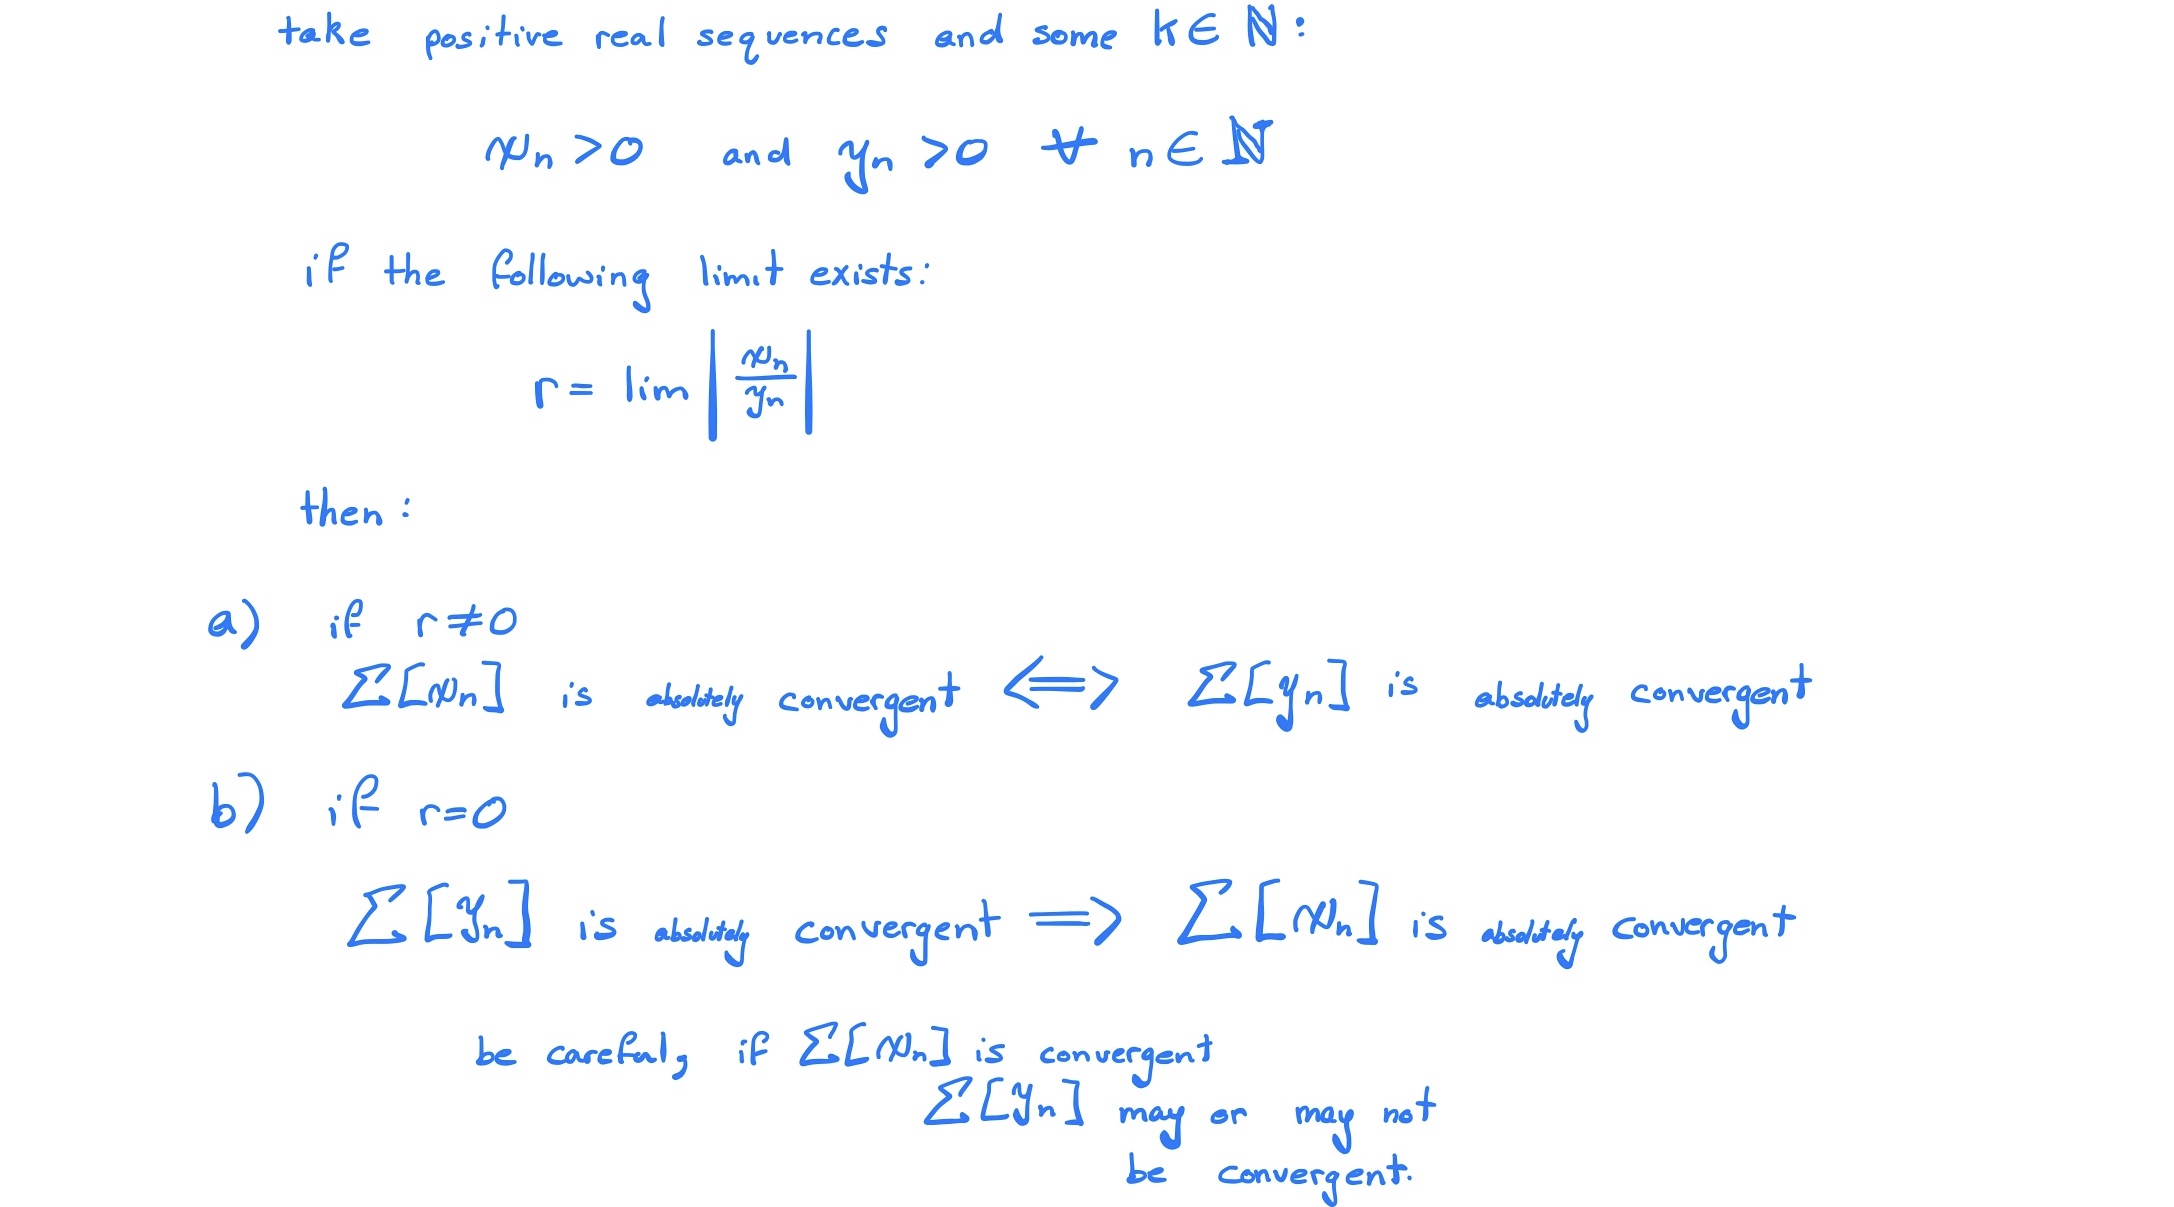 take positive real sequences and some k ∈ ℕ:
xₙ >0 and yₙ >0 ∀ n ∈ ℕ
if the following limit exists:
r = lim |xₙ/yₙ|
then:
a) if r≠0
Σ[xₙ] is absolutely convergent ⟺ Σ[yₙ] is absolutely convergent
b) if r=0
Σ[yₙ] is absolutely convergent ⟹ Σ[xₙ] is absolutely convergent
be careful, if Σ[xₙ] is convergent
Σ[yₙ] may or may not
be convergent.